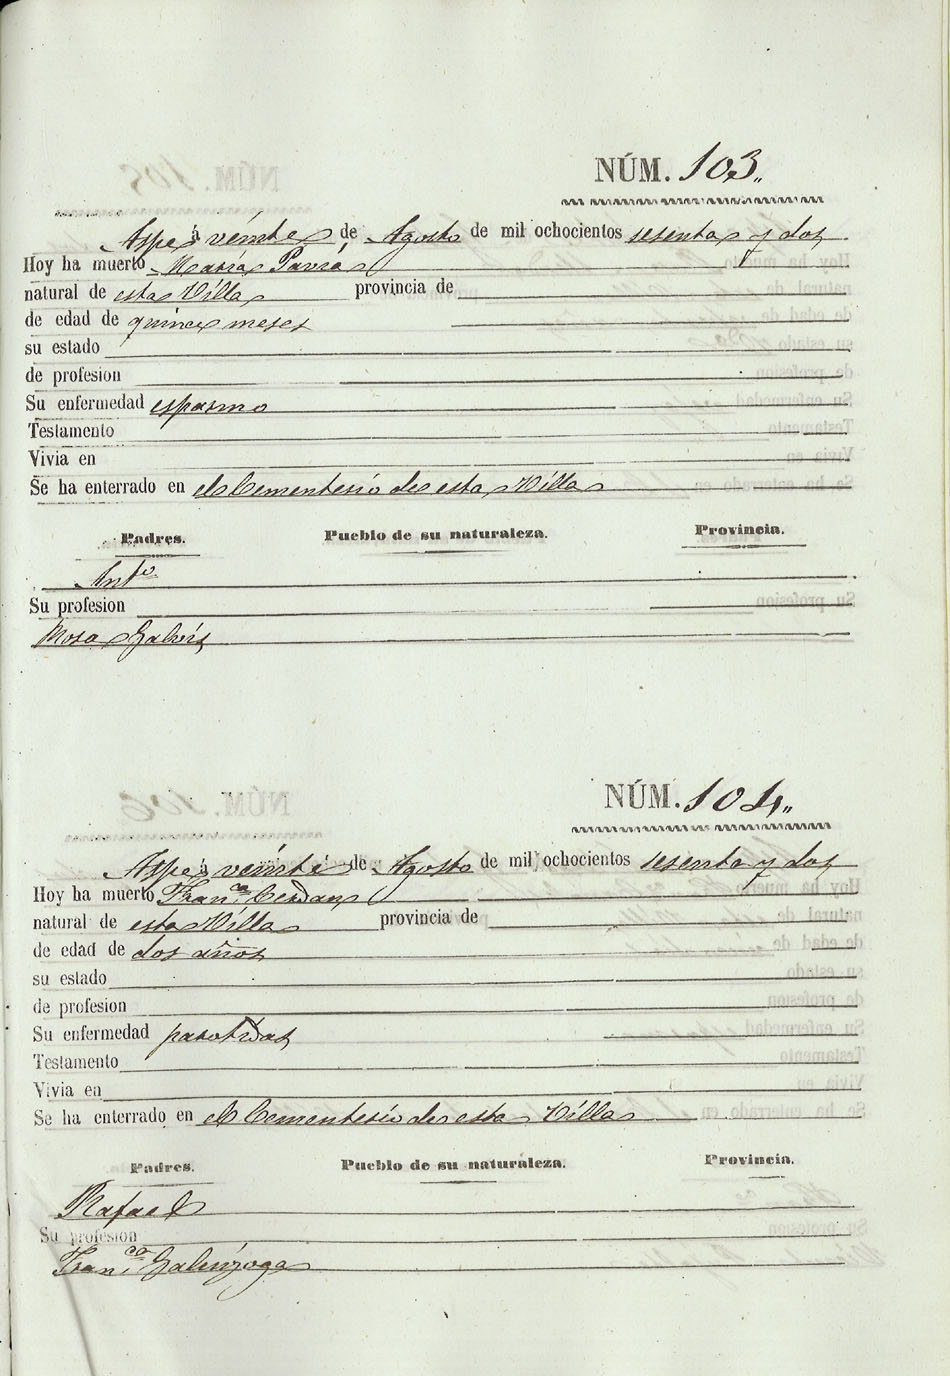 NÚM. 103.
Aspe á veinte de Agosto de mil ochocientos sesenta y dos
Hoy ha muerto María Pavía
natural de esta Villa provincia de
de edad de quince meses
su estado
de profesion
Su enfermedad espasmo
Testamento
Vivia en
Se ha enterrado en el Cementerio de esta Villa
Padres. Pueblo de su naturaleza. Provincia.
Antº
Su profesion
Rosa Galvis
NÚM. 104.
Aspe á veinte de Agosto de mil ochocientos sesenta y dos
Hoy ha muerto Franca Cerdan
natural de esta Villa provincia de
de edad de dos años
su estado
de profesion
Su enfermedad parotidas
Testamento
Vivia en
Se ha enterrado en el Cementerio de esta Villa
Padres. Pueblo de su naturaleza. Provincia.
Rafael
Su profesion
Franca Galinzoga